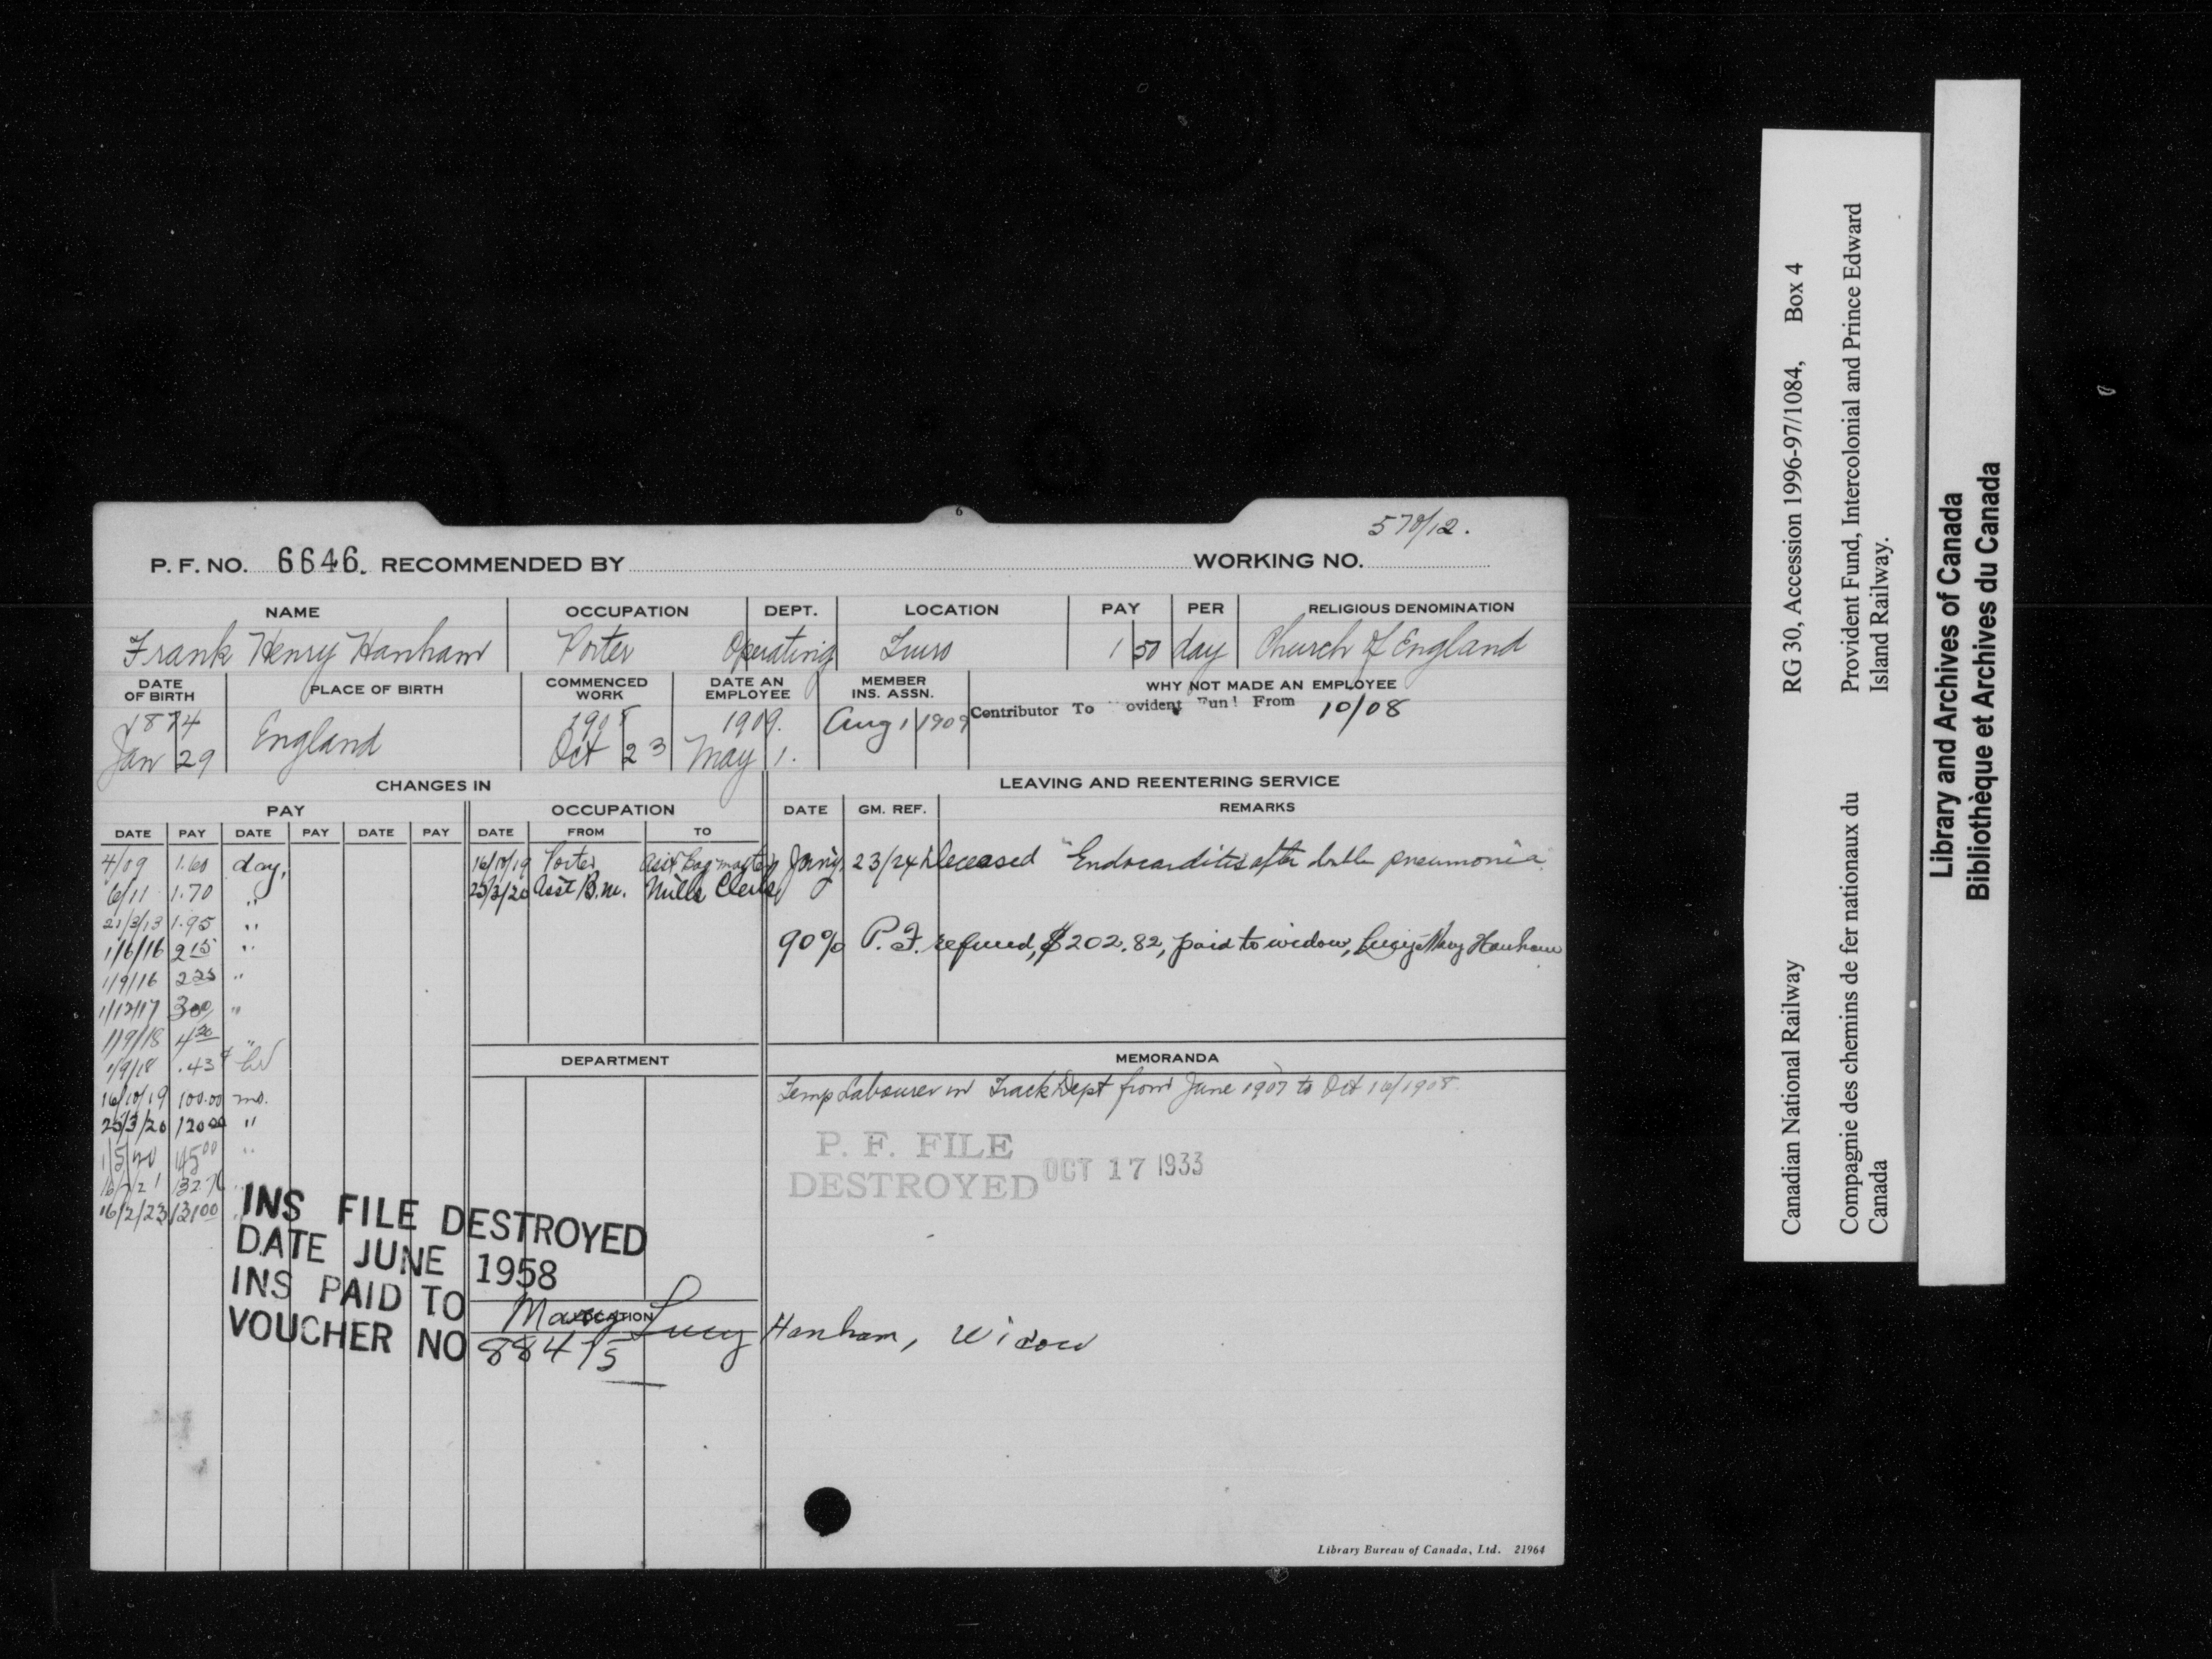 578/12.
P. F. NO. 6646. RECOMMENDED BY WORKING NO.
NAME OCCUPATION DEPT. LOCATION PAY PER RELIGIOUS DENOMINATION
Frank Henry Hanham Porter Operating Truro 1 50 day Church of England
DATE OF BIRTH PLACE OF BIRTH COMMENCED WORK DATE AN EMPLOYEE MEMBER INS. ASSN. WHY NOT MADE AN EMPLOYEE
1874 Jan 29 England 1908 Oct 23 1909. May 1. Aug 1 1909 Contributor To ovident Fund From 10/08
CHANGES IN LEAVING AND REENTERING SERVICE
PAY OCCUPATION DATE GM. REF. REMARKS
DATE PAY DATE PAY DATE PAY DATE FROM TO
4/09 1.60 day, 16/10/19 Porter Asst Bagmaster Jany 23/24 Deceased "Endocarditis after double pneumonia"
6/11 1.70 " 25/3/20 Asst B.m. Mills Clerk
21/3/13 1.95 "
90% P. F. refund, $202.82, paid to widow, Lucy Mary Hanham
1/6/16 2 15 "
1/9/16 2 25 "
1/12/17 3 00 "
1/9/18 4 30 "
1/9/18 .43 ¢ hr
DEPARTMENT MEMORANDA
16/10/19 100.00 mo. Temp Labourer in Track Dept from June 1907 to Oct 16/1908.
25/3/20 120 00 "
1/5/20 145 00 "
16/7/21 132.76 "
16/2/23 131 00
P. F. FILE
DESTROYED OCT 17 1933
INS FILE DESTROYED
DATE JUNE 1958
INS PAID TO Mary Lucy Hanham, Widow
LOCATION
VOUCHER NO 88475
Library Bureau of Canada, Ltd. 21964
6
Canadian National Railway RG 30, Accession 1996-97/1084, Box 4
Compagnie des chemins de fer nationaux du Canada
Provident Fund, Intercolonial and Prince Edward Island Railway.
Library and Archives of Canada
Bibliothèque et Archives du Canada